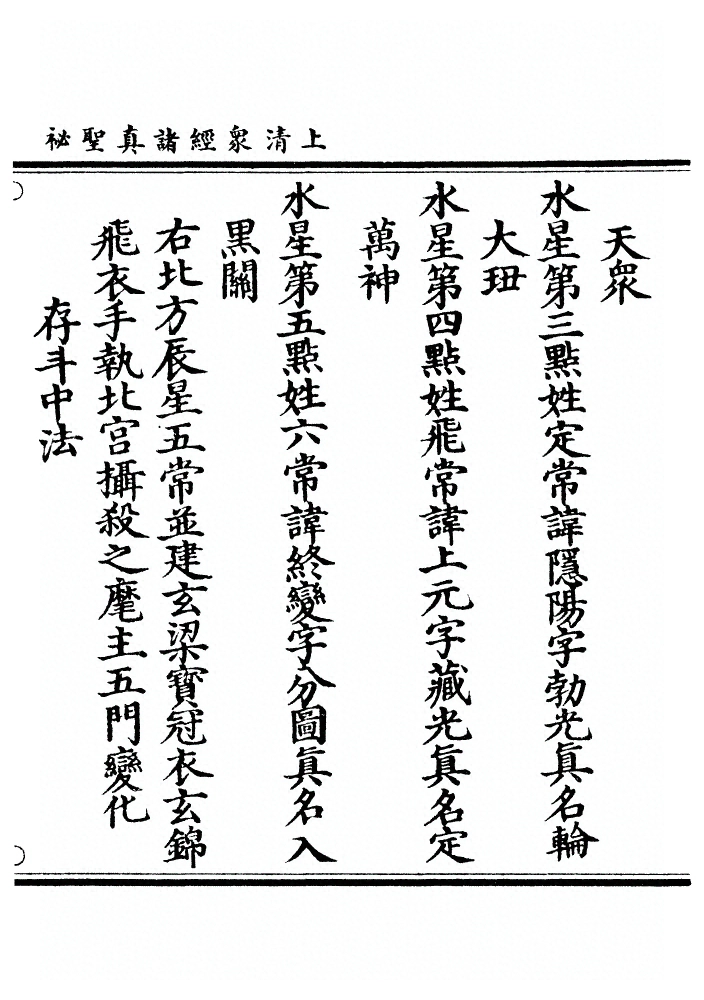 上清衆經諸真聖祕
天衆
水星第三點姓定常諱隱陽字勃光眞名輪
大玬
水星第四點姓飛常諱上元字藏光眞名定
萬神
水星第五點姓六常諱終變字分圖眞名入
黑關
右北方辰星五常並建玄梁寶冠衣玄錦
飛衣手執北宮攝殺之麾主五門變化
存斗中法